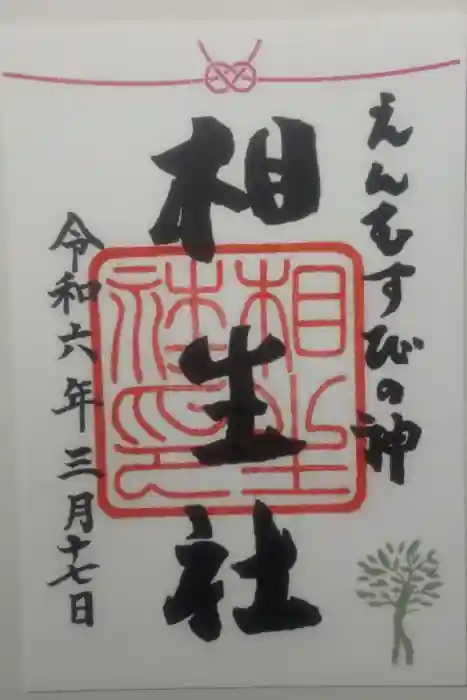 えんむすびの神
相生社
令和六年三月十七日